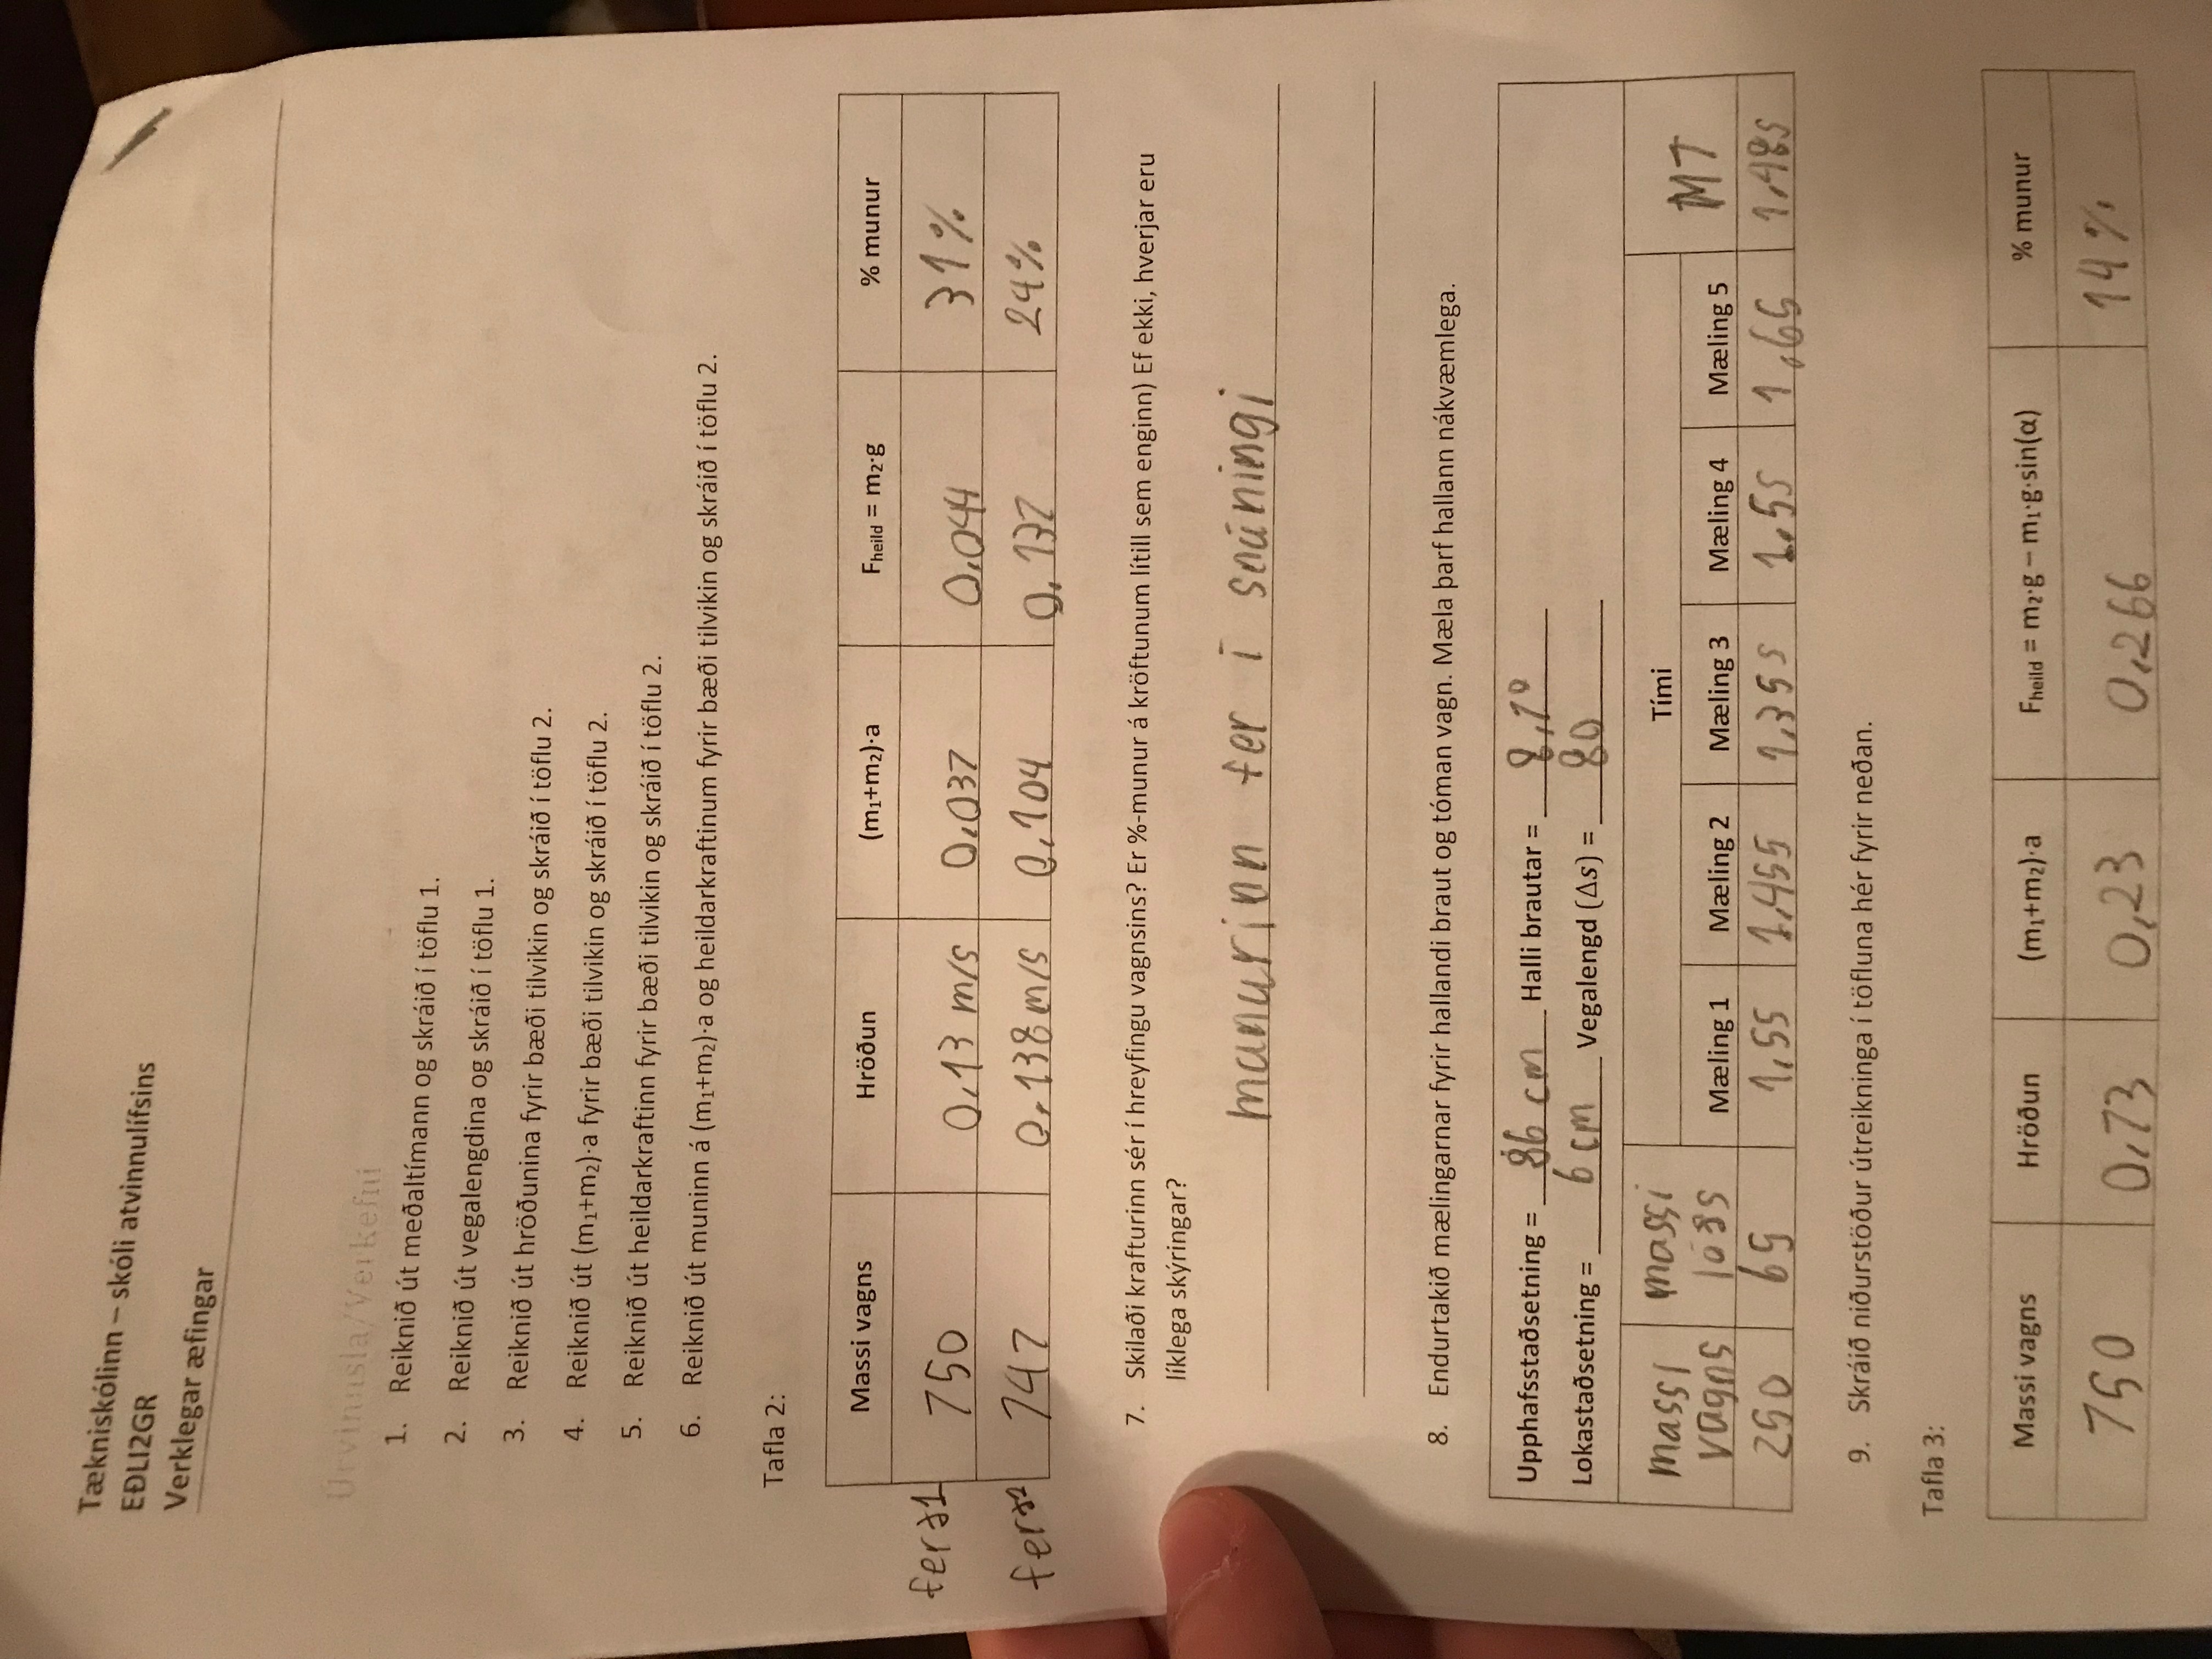 Tækniskólinn – skóli atvinnulífsins
EÐLI2GR
Verklegar æfingar
Úrvinnsla/Verkefni
1. Reiknið út meðaltímann og skráið í töflu 1.
2. Reiknið út vegalengdina og skráið í töflu 1.
3. Reiknið út hröðunina fyrir bæði tilvikin og skráið í töflu 2.
4. Reiknið út (m₁+m₂)·a fyrir bæði tilvikin og skráið í töflu 2.
5. Reiknið út heildarkraftinn fyrir bæði tilvikin og skráið í töflu 2.
6. Reiknið út muninn á (m₁+m₂)·a og heildarkraftinum fyrir bæði tilvikin og skráið í töflu 2.
Tafla 2:
Massi vagns Hröðun (m₁+m₂)·a Fheild = m₂·g % munur
ferð1 250 0,13 m/s 0,037 0.044 31%
ferð2 747 0,138 m/s 0,104 0,137 24%
7. Skilaði krafturinn sér í hreyfingu vagnsins? Er %-munur á kröftunum lítill sem enginn) Ef ekki, hverjar eru
líklega skýringar?
munurinn fer í snúningi
8. Endurtakið mælingarnar fyrir hallandi braut og tóman vagn. Mæla þarf hallann nákvæmlega.
Upphafsstaðsetning = 86 cm Halli brautar = 8,1°
Lokastaðsetning = 6 cm Vegalengd (Δs) = 80
massi massi Tími MT
vagns lóðs Mæling 1 Mæling 2 Mæling 3 Mæling 4 Mæling 5
250 65 1,5s 1,45s 1,35s 1,5s 1,6s 1,48s
9. Skráið niðurstöður útreikninga í töfluna hér fyrir neðan.
Tafla 3:
Massi vagns Hröðun (m₁+m₂)·a Fheild = m₂·g – m₁·g·sin(α) % munur
250 0,73 0,23 0,266 14%